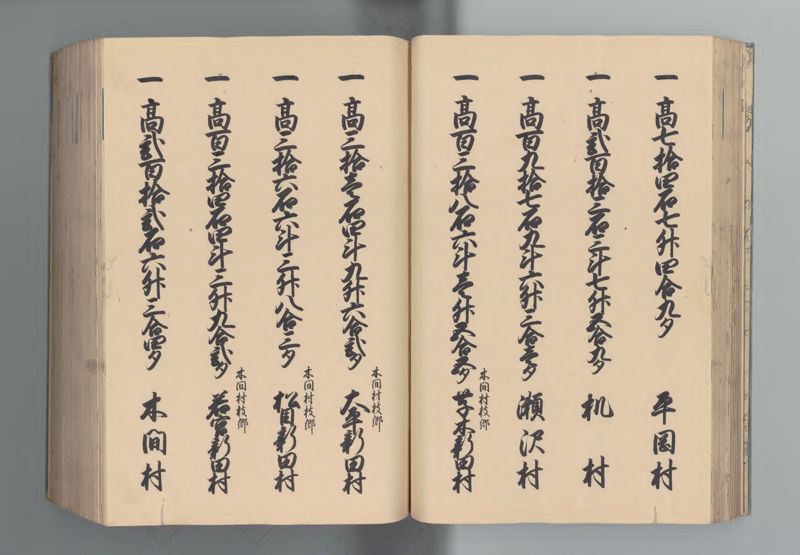 一 高七拾四石七升四合九夕 平岡村
一 高弐百拾三石三斗七升五合九夕 机村
一 高百九拾七石九斗六升三合壱夕 瀬沢村
一 高百三拾八石六斗壱升五合五夕 木間村枝郷 芋木新田村
一 高三拾壱石四斗九升六合弐夕 木間村枝郷 大平新田村
一 高三拾六石六斗三升八合三夕 木間村枝郷 松目新田村
一 高百三拾四石四斗三升九合弐夕 木間村枝郷 若宮新田村
一 高弐百拾弐石六升三合四夕 木間村